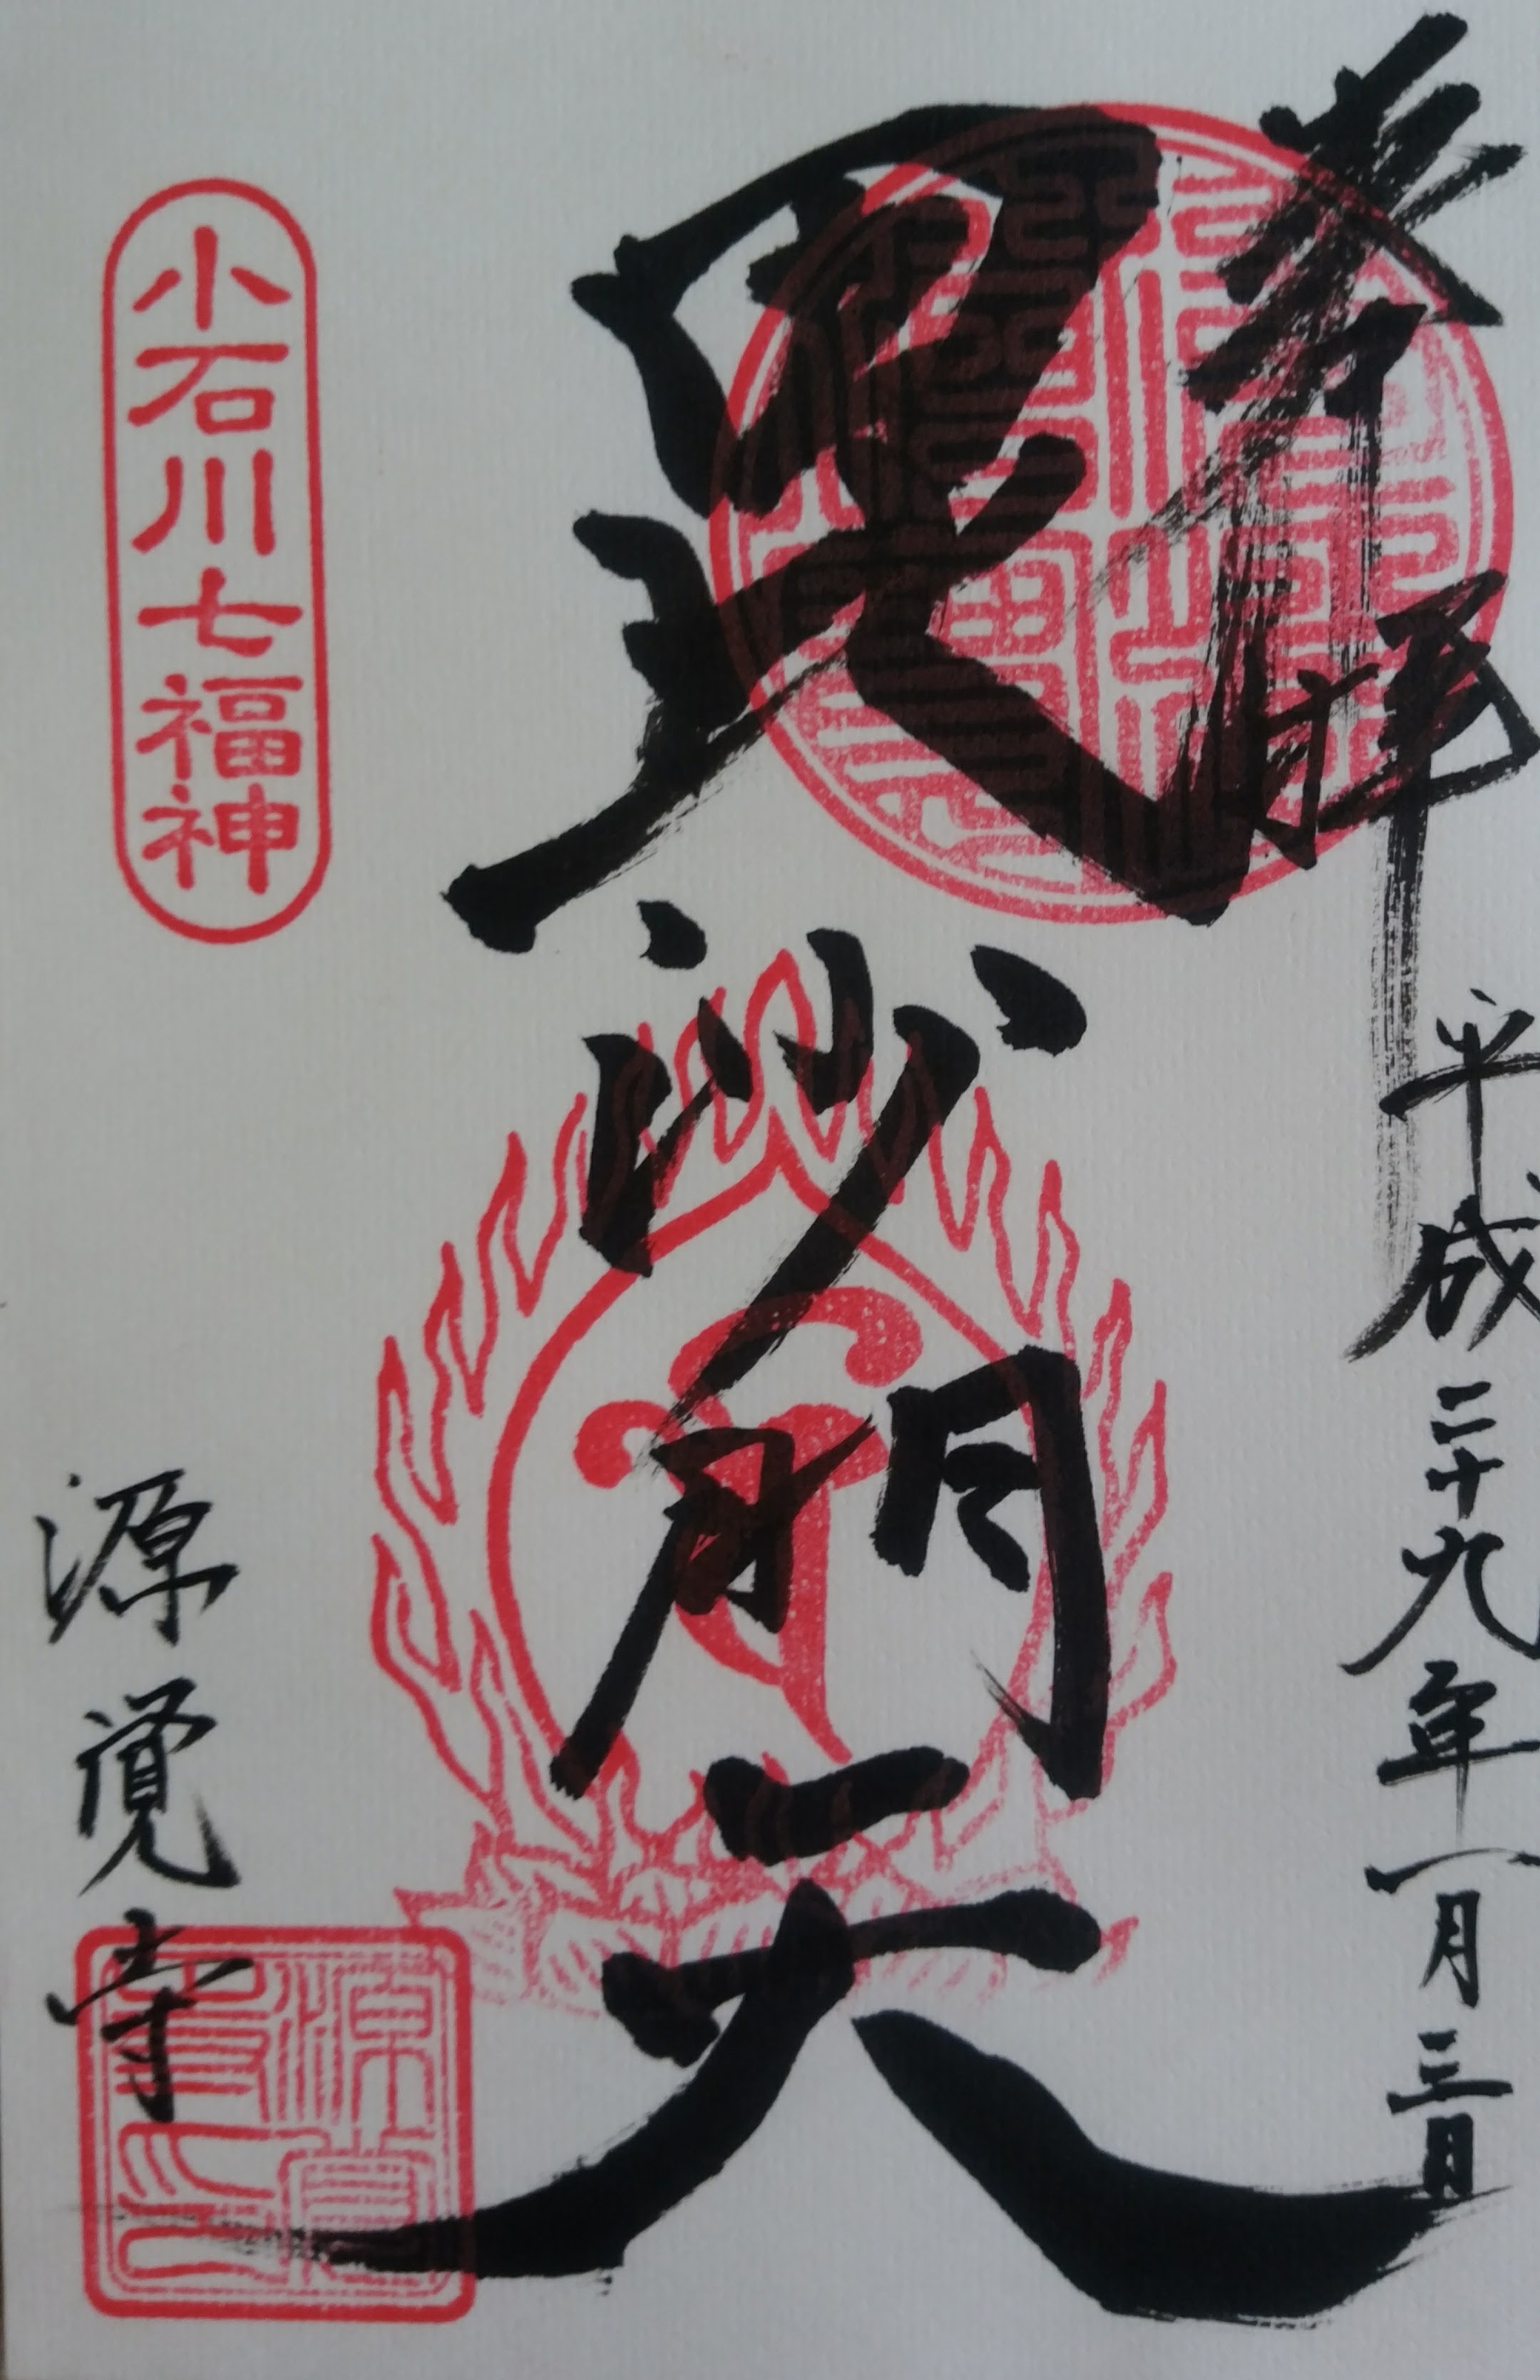 奉拝
平成二十九年一月三日
毘沙門天
小石川七福神
源覚寺
源覚寺印